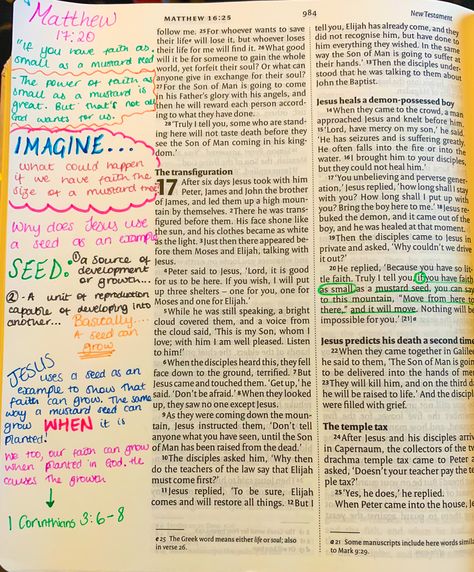 Matthew
17:20
"if you have faith as
small as a mustard seed
- The power of faith as
small as a mustard is
great. But that's not all
God wants for us.
IMAGINE...
what could happen
if we have faith the
size of a mustard tree
Why does Jesus use
a seed as an example
SEED: ① a source of
development
or growth...
② - A unit of reproduction
capable of developing into
another...
Basically...
A seed can
grow
JESUS
uses a seed as an
example to show that
faith can grow. The same
way a mustard seed can
grow WHEN it is
planted!
We too, our faith can grow
when planted in God. He
causes the growth
1 Corinthians 3:6-8
MATTHEW 16:25
984
New Testament
follow me. 25 For whoever wants to save
their life will lose it, but whoever loses
their life for me will find it. 26 What good
will it be for someone to gain the whole
world, yet forfeit their soul? Or what can
anyone give in exchange for their soul?
27 For the Son of Man is going to come
in his Father's glory with his angels, and
then he will reward each person according
to what they have done.
28 'Truly I tell you, some who are standing
here will not taste death before they
see the Son of Man coming in his kingdom.'
The transfiguration
17 After six days Jesus took with him
Peter, James and John the brother
of James, and led them up a high mountain
by themselves. 2 There he was transfigured
before them. His face shone like
the sun, and his clothes became as white
as the light. 3 Just then there appeared before
them Moses and Elijah, talking with
Jesus.
4 Peter said to Jesus, 'Lord, it is good
for us to be here. If you wish, I will put
up three shelters – one for you, one for
Moses and one for Elijah.'
5 While he was still speaking, a bright
cloud covered them, and a voice from
the cloud said, 'This is my Son, whom I
love; with him I am well pleased. Listen
to him!'
6 When the disciples heard this, they fell
face down to the ground, terrified. 7 But
Jesus came and touched them. 'Get up,' he
said. 'Don't be afraid.' 8 When they looked
up, they saw no one except Jesus.
9 As they were coming down the mountain,
Jesus instructed them, 'Don't tell
anyone what you have seen, until the Son
of Man has been raised from the dead.'
10 The disciples asked him, 'Why then
do the teachers of the law say that Elijah
must come first?'
11 Jesus replied, 'To be sure, Elijah
comes and will restore all things. 12 But I
e 25 The Greek word means either life or soul; also
in verse 26.
tell you, Elijah has already come, and they
did not recognise him, but have done to
him everything they wished. In the same
way the Son of Man is going to suffer at
their hands.' 13 Then the disciples understood
that he was talking to them about
John the Baptist.
Jesus heals a demon-possessed boy
14 When they came to the crowd, a man
approached Jesus and knelt before him.
15 'Lord, have mercy on my son,' he said.
'He has seizures and is suffering greatly.
He often falls into the fire or into the
water. 16 I brought him to your disciples,
but they could not heal him.'
17 'You unbelieving and perverse generation,'
Jesus replied, 'how long shall I stay
with you? How long shall I put up with
you? Bring the boy here to me.' 18 Jesus rebuked
the demon, and it came out of the
boy, and he was healed at that moment.
19 Then the disciples came to Jesus in
private and asked, 'Why couldn't we drive
it out?'
20 He replied, 'Because you have so little
faith. Truly I tell you, if you have faith
as small as a mustard seed, you can say
to this mountain, "Move from here to
there," and it will move. Nothing will be
impossible for you.' [21] e
Jesus predicts his death a second time
22 When they came together in Galilee,
he said to them, 'The Son of Man is going
to be delivered into the hands of men.
23 They will kill him, and on the third day
he will be raised to life.' And the disciples
were filled with grief.
The temple tax
24 After Jesus and his disciples arrived
in Capernaum, the collectors of the two-
drachma temple tax came to Peter and
asked, 'Doesn't your teacher pay the temple
tax?'
25 'Yes, he does,' he replied.
When Peter came into the house, Jesus
e 21 Some manuscripts include here words similar
to Mark 9:29.